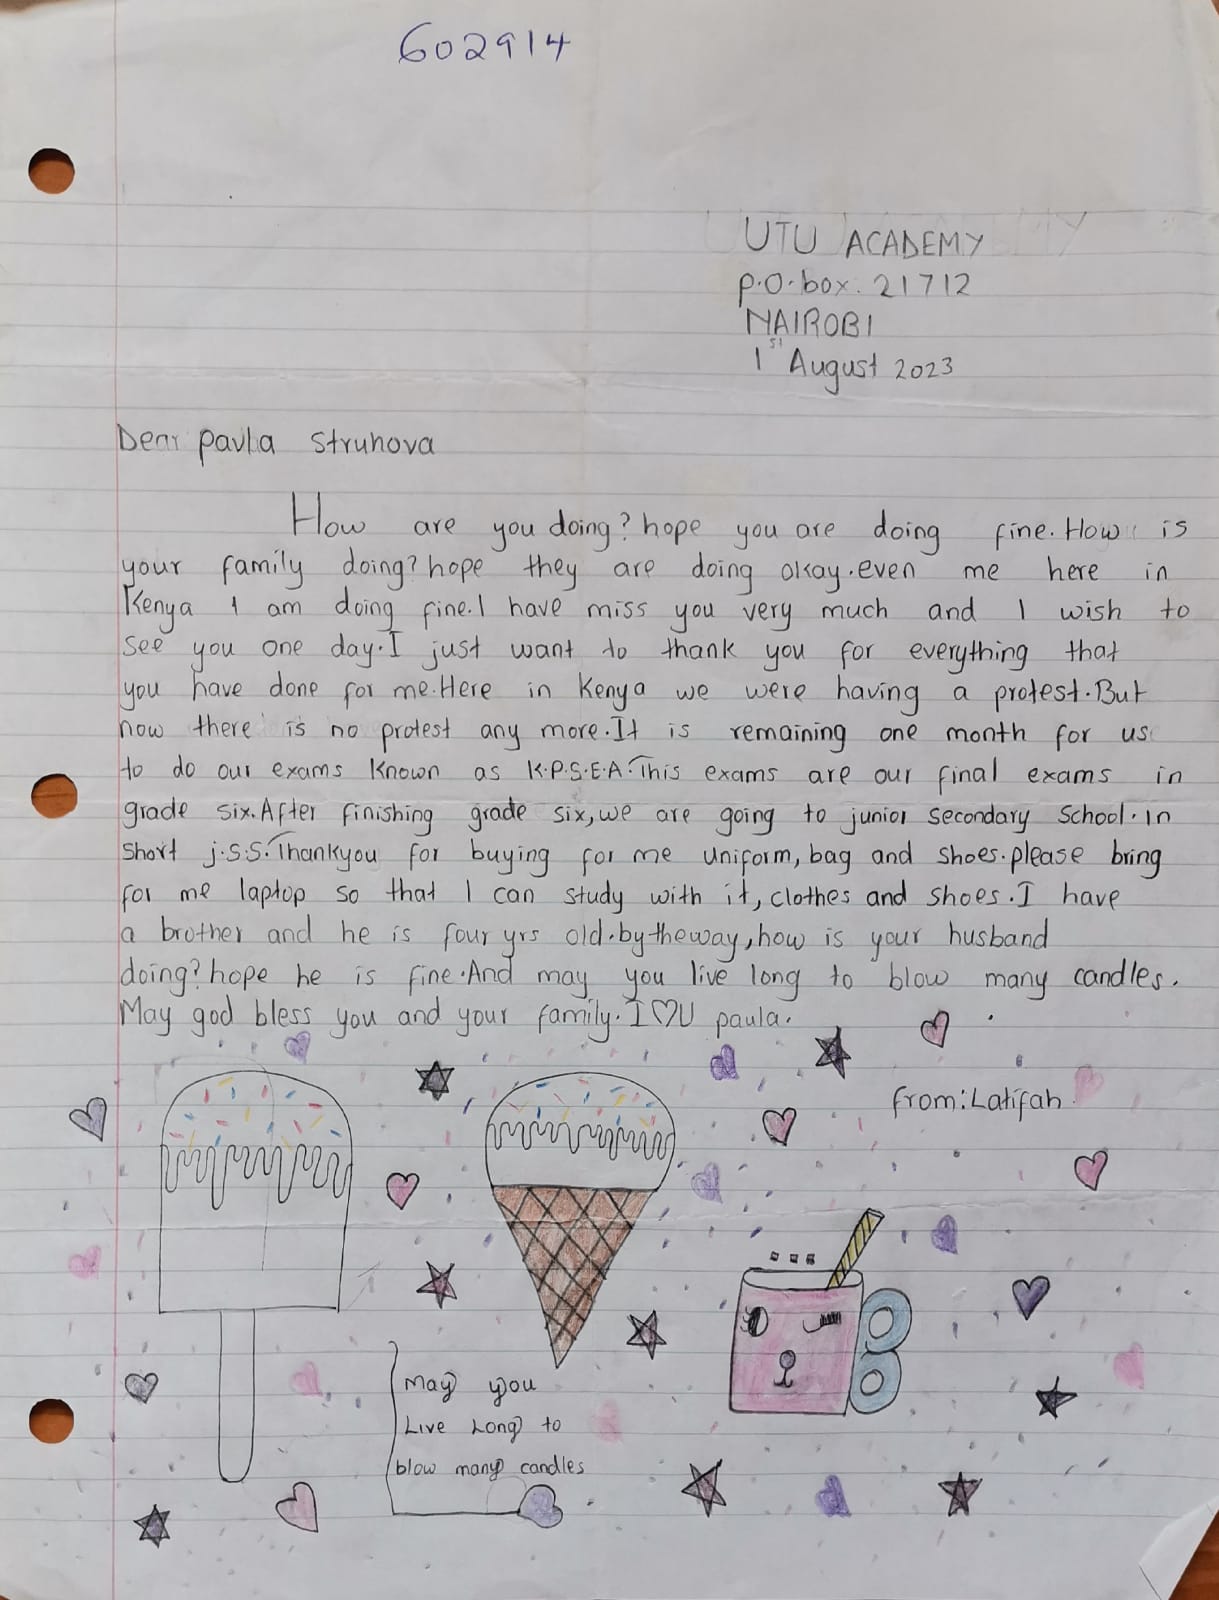 602914
UTU ACADEMY
P.O.box. 21712
NAIROBI
1st August 2023
Dear pavla Struhova
How are you doing? hope you are doing fine. How is
your family doing? hope they are doing okay. even me here in
Kenya I am doing fine. I have miss you very much and I wish to
see you one day. I just want to thank you for everything that
you have done for me. Here in Kenya we were having a protest. But
now there is no protest any more. It is remaining one month for us
to do our exams known as K.P.S.E.A. This exams are our final exams in
grade six. After finishing grade six, we are going to junior secondary school. In
short j.s.s. Thankyou for buying for me uniform, bag and shoes. please bring
for me laptop so that I can study with it, clothes and shoes. I have
a brother and he is four yrs old. by theway, how is your husband
doing? hope he is fine. And may you live long to blow many candles.
May god bless you and your family. I ♡ U paula.
from: Latifah
May you
Live Long to
blow many candles